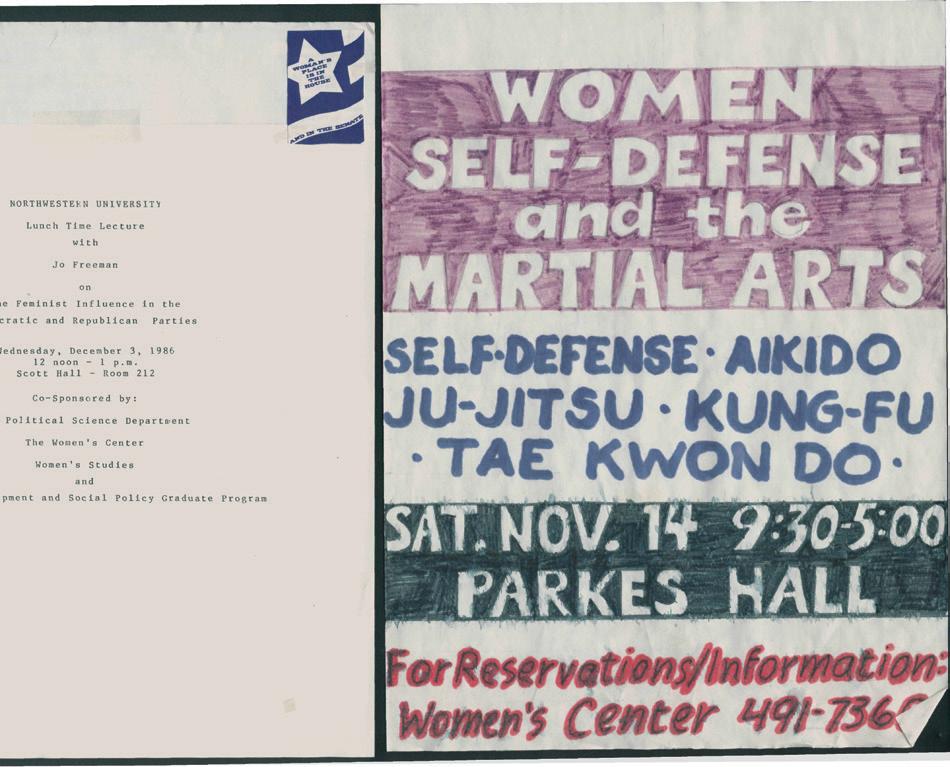 A
WOMAN'S
PLACE
IS IN
THE
HOUSE
AND IN THE SENATE
NORTHWESTERN UNIVERSITY
Lunch Time Lecture
with
Jo Freeman
on
Feminist Influence in the
and Republican Parties
Wednesday, December 3, 1986
12 noon - 1 p.m.
Scott Hall - Room 212
Co-Sponsored by:
Political Science Department
The Women's Center
Women's Studies
and
and Social Policy Graduate Program
WOMEN
SELF-DEFENSE
and the
MARTIAL ARTS
SELF-DEFENSE · AIKIDO
JU-JITSU · KUNG-FU
· TAE KWON DO ·
SAT. NOV. 14 9:30-5:00
PARKES HALL
For Reservations/Information:
Women's Center 491-736